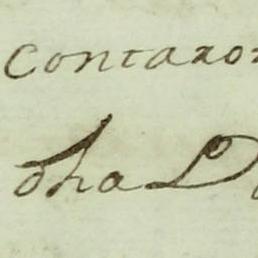 Contaron
dha D